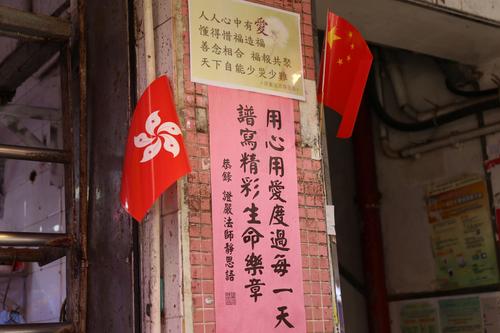 人人心中有愛
懂得惜福造福
善念相合 福報共聚
天下自能少災少難
用心用愛度過每一天
譜寫精彩生命樂章
恭錄 證嚴法師靜思語